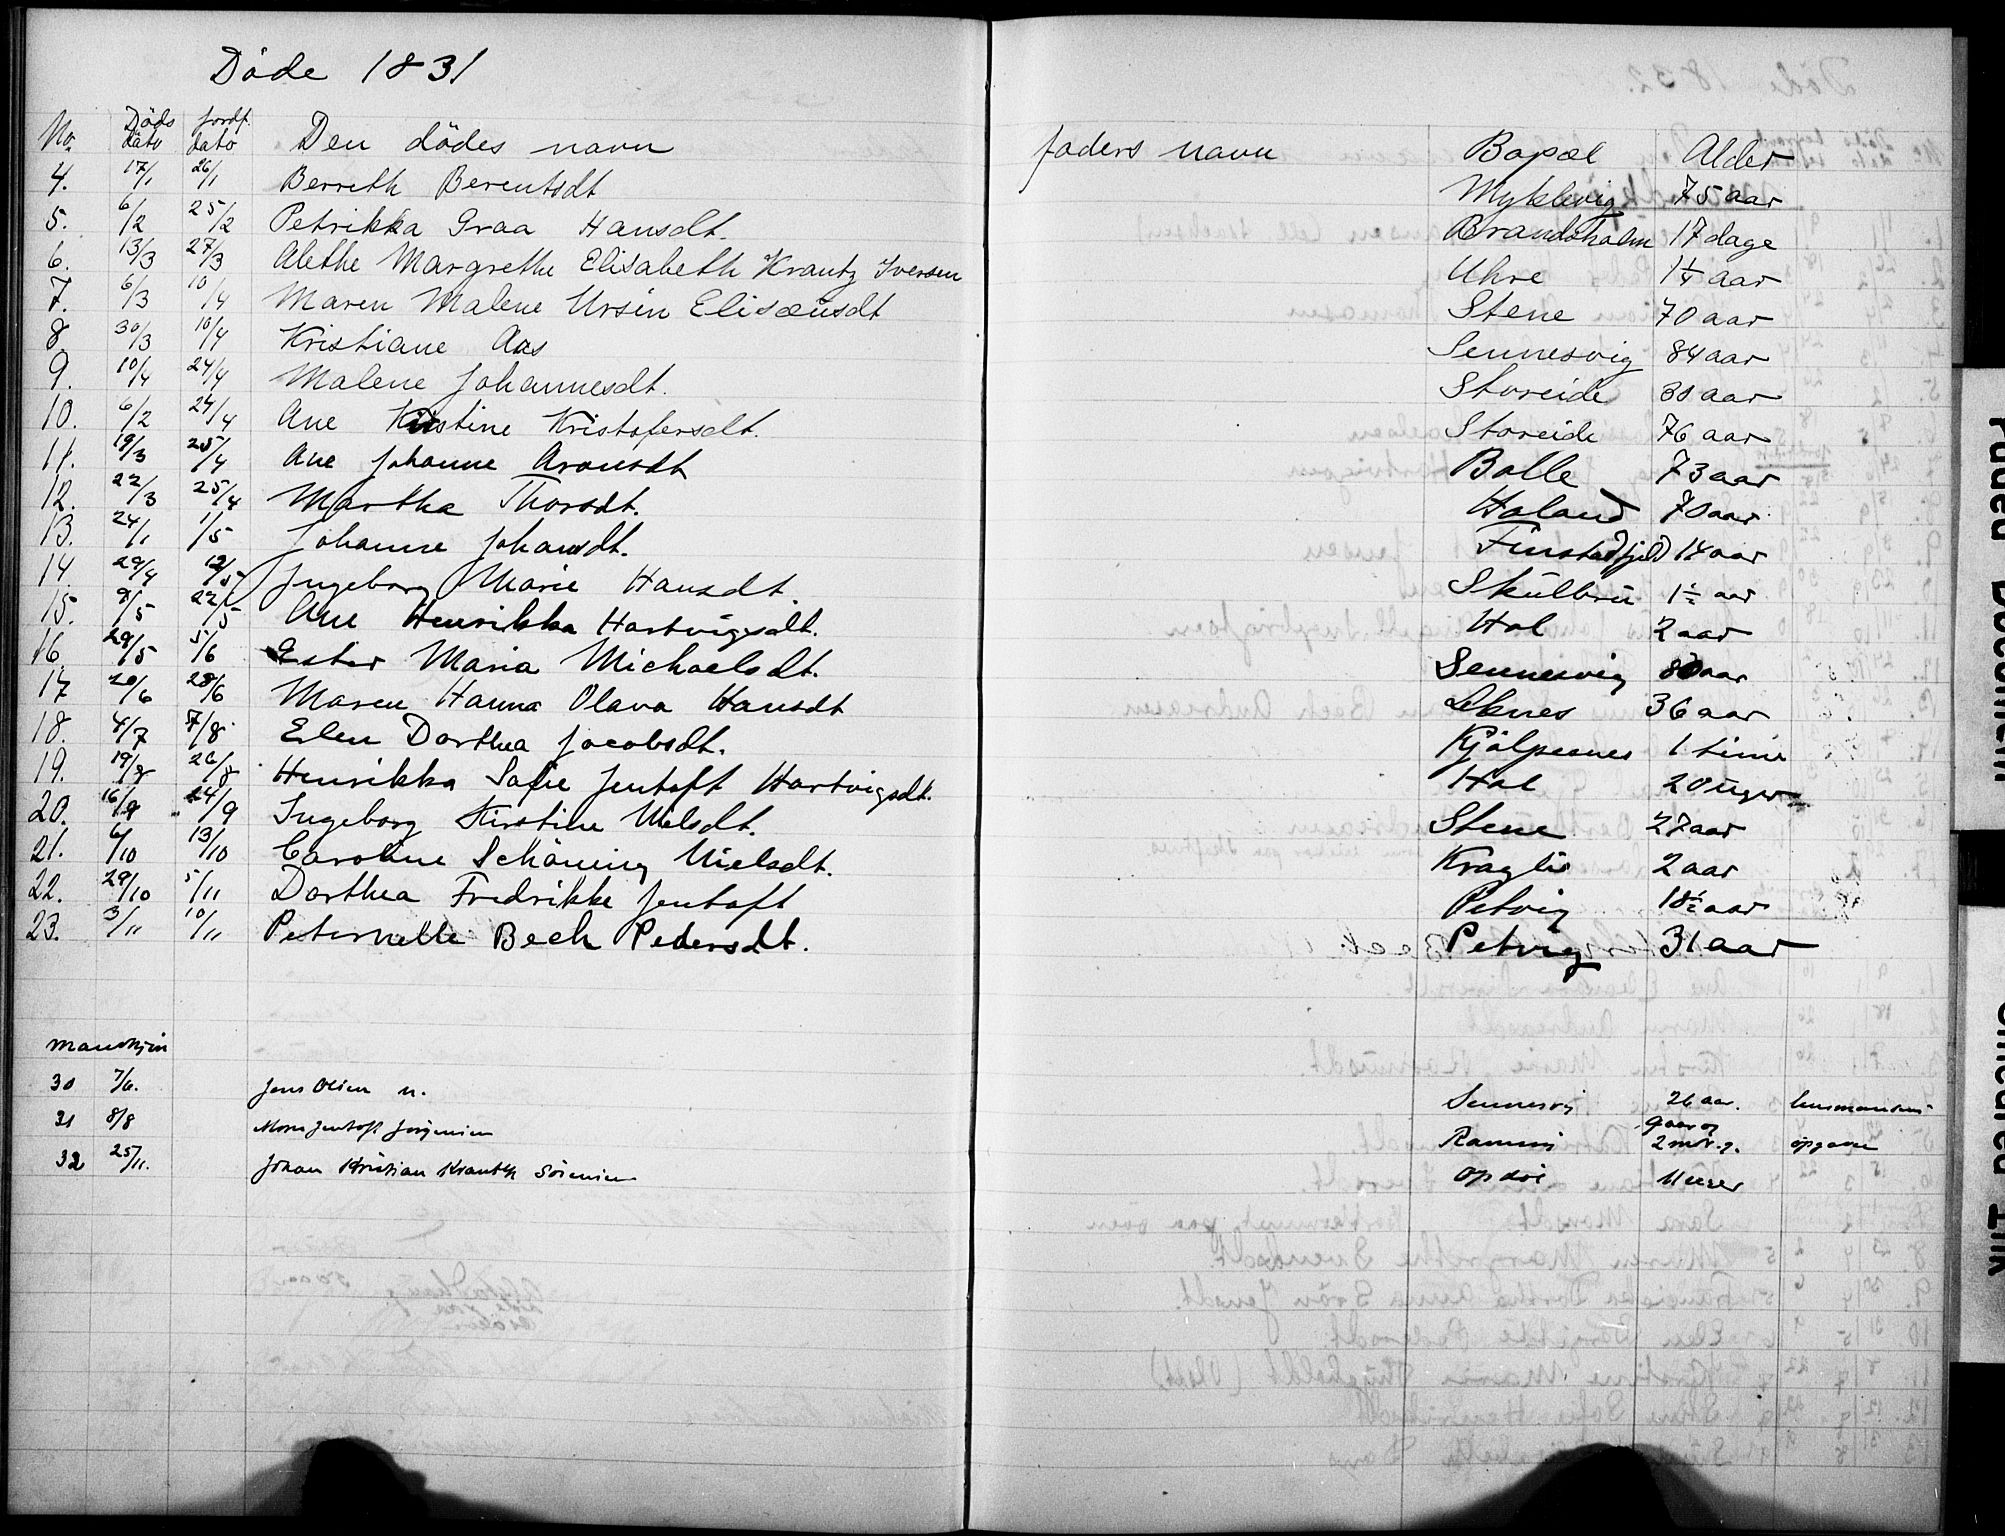 Döde 1831
No. Döds dato Jordf. dato Den dödes navn faders navn Bopæl Alder
4. 17/1 26/1 Berreth Berentsdt Myklevig 75 aar
5. 6/2 25/2 Petrikka Graa Hansdt. Brandsholm 17 dage
6. 13/3 27/3 Alethe Margrethe Elisabeth Krantz Iversen Uhre 1 1/4 aar
7. 6/3 10/4 Maren Malene Ursin Elisæusdt Stene 70 aar
8. 30/3 10/4 Kristiane Aas Sennesvig 84 aar
9. 10/4 24/4 Malene Johannesdt. Storeide 30 aar
10. 6/2 24/4 Ane Kirstine Kristofersdt. Storeide 76 aar
11. 19/3 25/4 Ane Johanne Aronsdt Bolle 73 aar
12. 22/3 25/4 Martha Thorsdt. Haland 70 aar
13. 24/1 1/5 Johanne Johansdt. Finstadfjeld 14 aar
14. 29/4 12/5 Ingeborg Marie Hansdt. Skulbru 1 1/2 aar
15. 9/5 22/5 Ane Henrikka Hartvigsdt. Hol 2 aar
16. 29/5 5/6 Ester Maria Michaelsdt. Sennesvig 80 aar
17 20/6 28/6 Maren Hanna Olava Hansdt Leknes 36 aar
18. 4/7 7/8 Elen Dorthea Jacobsdt. Kjölpesnes 1 time
19. 19/8 26/8 Henrikka Sofie Jentoft Hartvigsdt. Hol 20 uger
20. 16/9 24/9 Ingeborg Kirstine Nielsdt. Stene 27 aar
21. 6/10 13/10 Caroline Schöning Nielsdt. Kraglie 2 aar
22. 29/10 5/11 Dorthea Fredrikke Jentoft Petvig 18 1/2 aar
23. 3/11 10/11 Peternelle Bech Pedersdt. Petvig 31 aar
mandkjön
30 7/6. Jens Olsen n. Sennesvj 26 aar.
31 8/8 Mons Jentoft Jörgensen Ramsvj 9 aar og 2 mdr.
32 25/11. Johan Kristian Krantz Sörensen Opdöl 11 uger